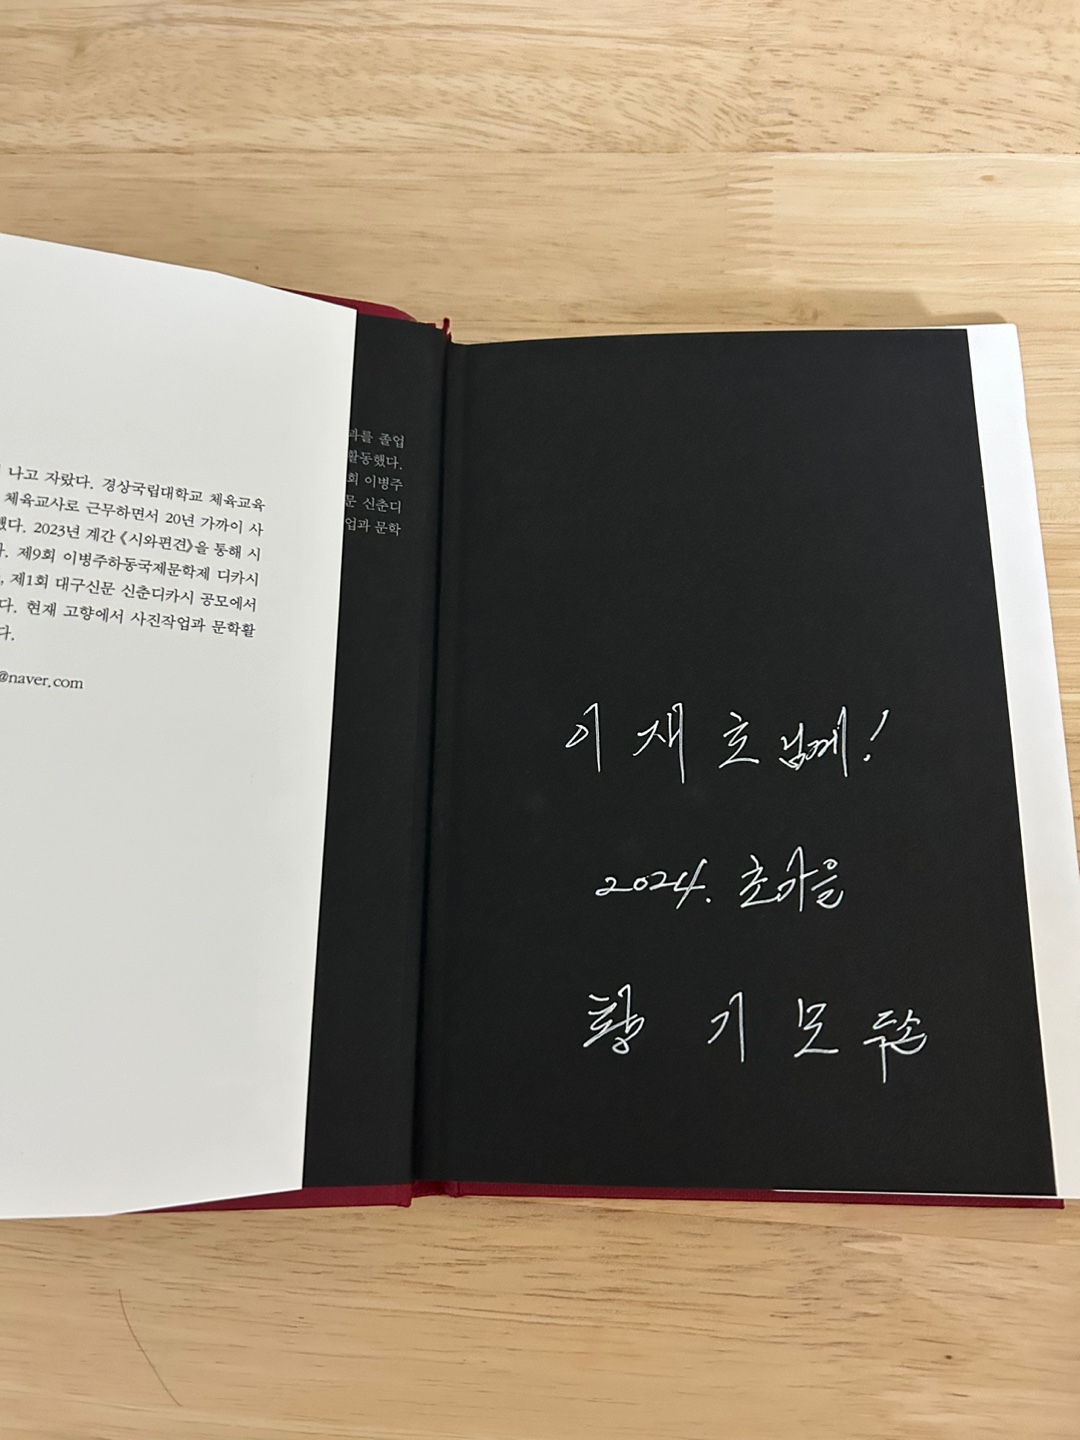 나고 자랐다. 경상국립대학교 체육교육
체육교사로 근무하면서 20년 가까이 사
했다. 2023년 계간 《시와편견》을 통해 시
. 제9회 이병주하동국제문학제 디카시
, 제1회 대구신문 신춘디카시 공모에서
다. 현재 고향에서 사진작업과 문학활
다.
@naver.com
과를 졸업
활동했다.
회 이병주
문 신춘디
업과 문학
이재호님께!
2024. 초가을
황기모 두손